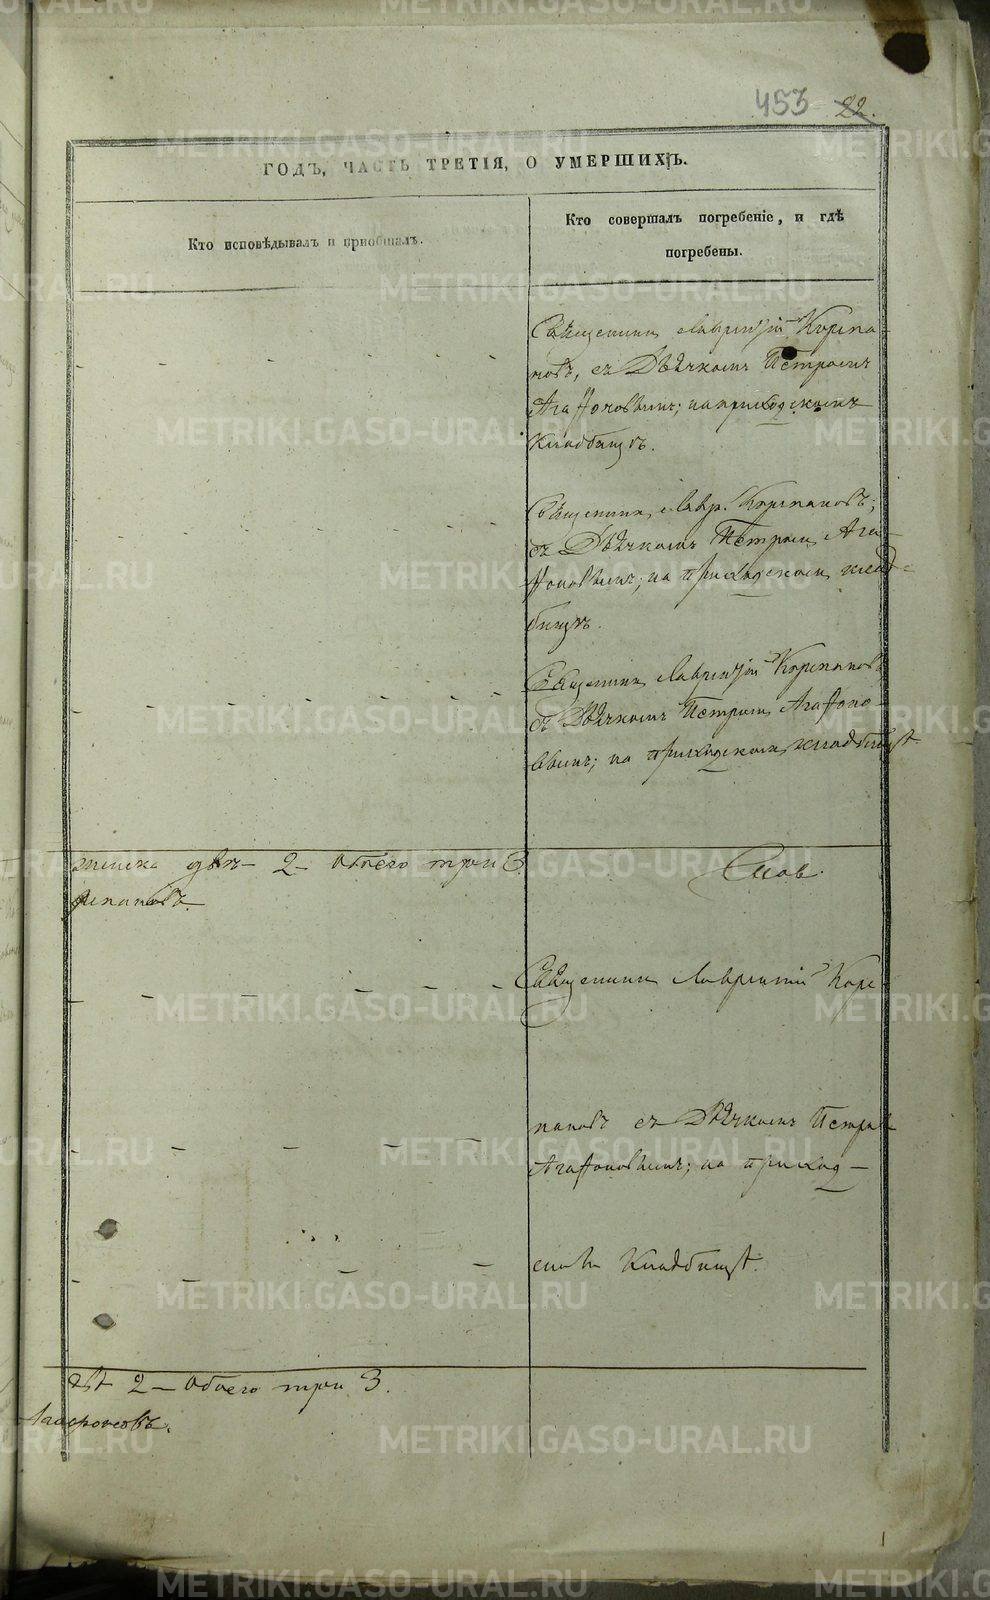 453 22.
ГОДЪ, ЧАСТЬ ТРЕТІЯ, О УМЕРШИХЪ.
Кто исповѣдывалъ и пріобщалъ.
Кто совершалъ погребеніе, и гдѣ
погребены.
Священникъ Лаврентій Корепа-
новъ, съ Дьячкомъ Петромъ
Агафоновымъ; на приходскомъ
Кладбищѣ.
Священникъ Лавр. Корепановъ;
съ Дьячкомъ Петромъ Ага-
фоновымъ; на приходскомъ клад-
бищѣ.
Священникъ Лаврентій Корепановъ
съ Дьячкомъ Петромъ Агафоно-
вымъ; на приходскомъ кладбищѣ.
женска двѣ – 2 – Обоего три 3.
репановъ.
Священникъ Лаврентій Коре-
пановъ съ Дьячкомъ Петром
Агафоновымъ; на приход-
скомъ Кладбищѣ.
2 – Обоего три 3.
METRIKI.GASO-URAL.RU